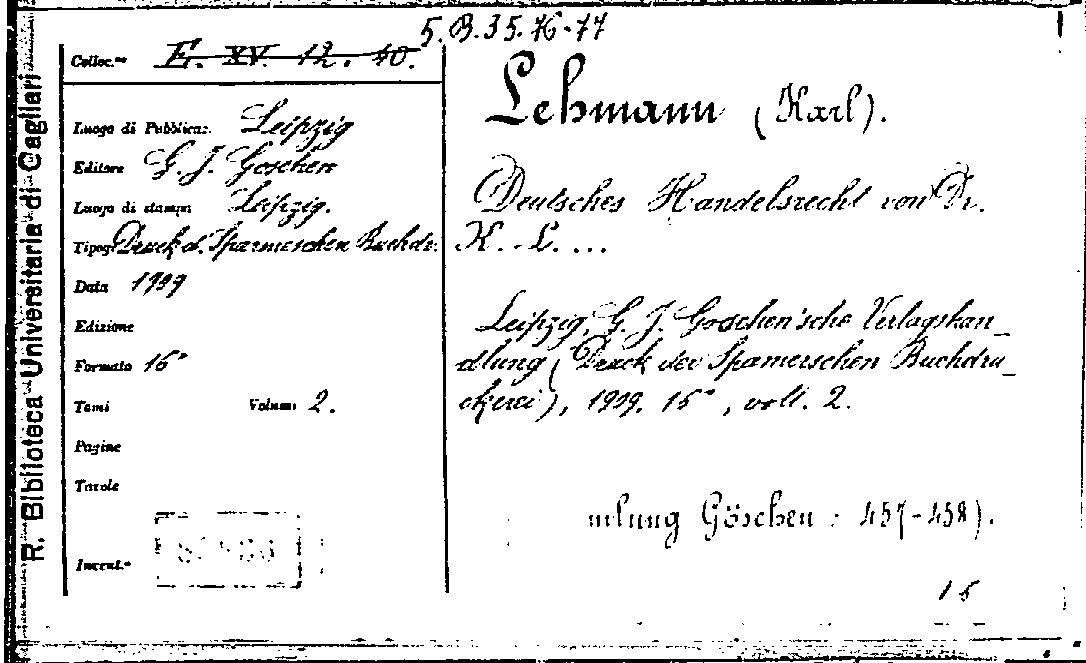 5.B.35.76-77
Colloc.ne F. XV. 12. 40.
Lehmann (Karl).
Luogo di Pubblicaz. Leipzig
Editore G. J. Goschen
Luogo di stampa Leipzig.
Tipogr. Druck d. Spamerschen Buchdr.
Data
Edizione
Formato 16°
Tomi Volumi 2.
Pagine
Tavole
Invent.le
Deutsches Handelsrecht von Dr.
K. L....
Leipzig, G. J. Goschen'sche Verlagshan_
dlung (Druck der Spamerschen Buchdru_
ckerei), 16°, voll. 2.
mlung Göschen : 457-458).
R. Biblioteca Universitaria di Cagliari